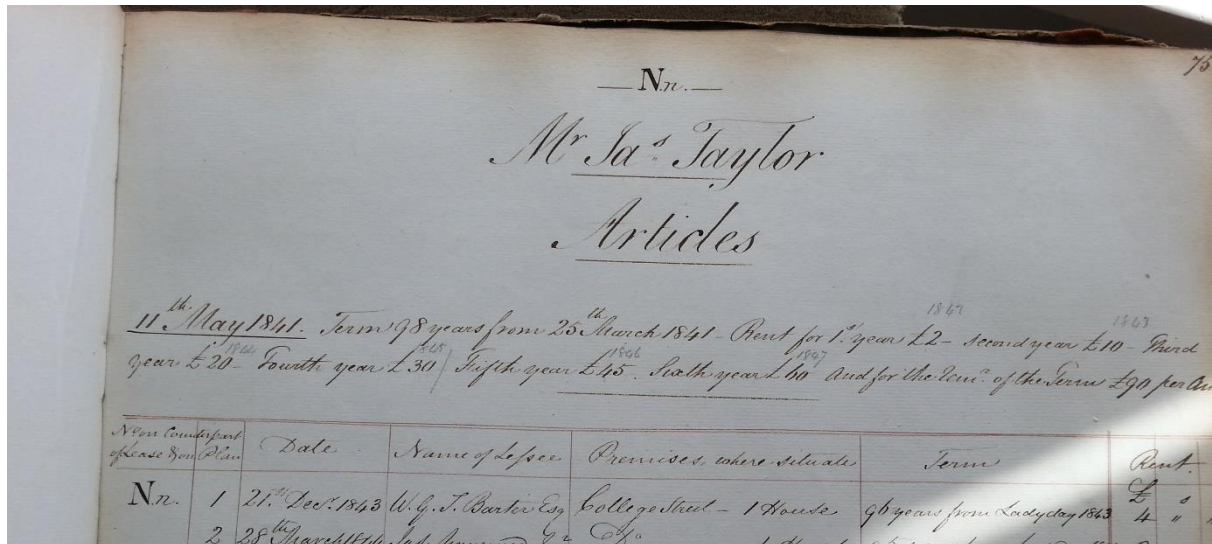 75
— Nn. —
Mr Jas. Taylor
Articles
1842 1843
11th May 1841. Term 98 years from 25th March 1841 - Rent for 1st year £2 - second year £10 - Third
1844 1845 1846 1847
year £20 - Fourth year £30 / Fifth year £45. Sixth year £60 And for the rem.r of the Term £90 per An
No on Counterpart of Lease & on Plan Date Name of Lessee Premises, where situate Term Rent.
£ s
Nn. 1 21st Decr. 1843 W. G. J. Barter Esq College Street - 1 House 96 years from Ladyday 1843 4 " "
2 28th March 1844 Do